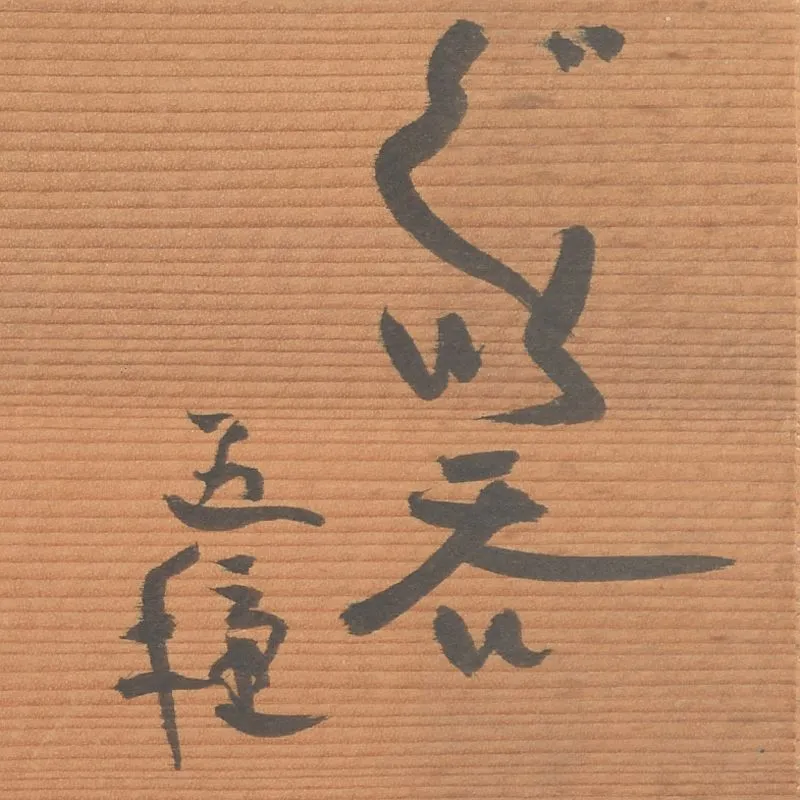 ぐい呑
五